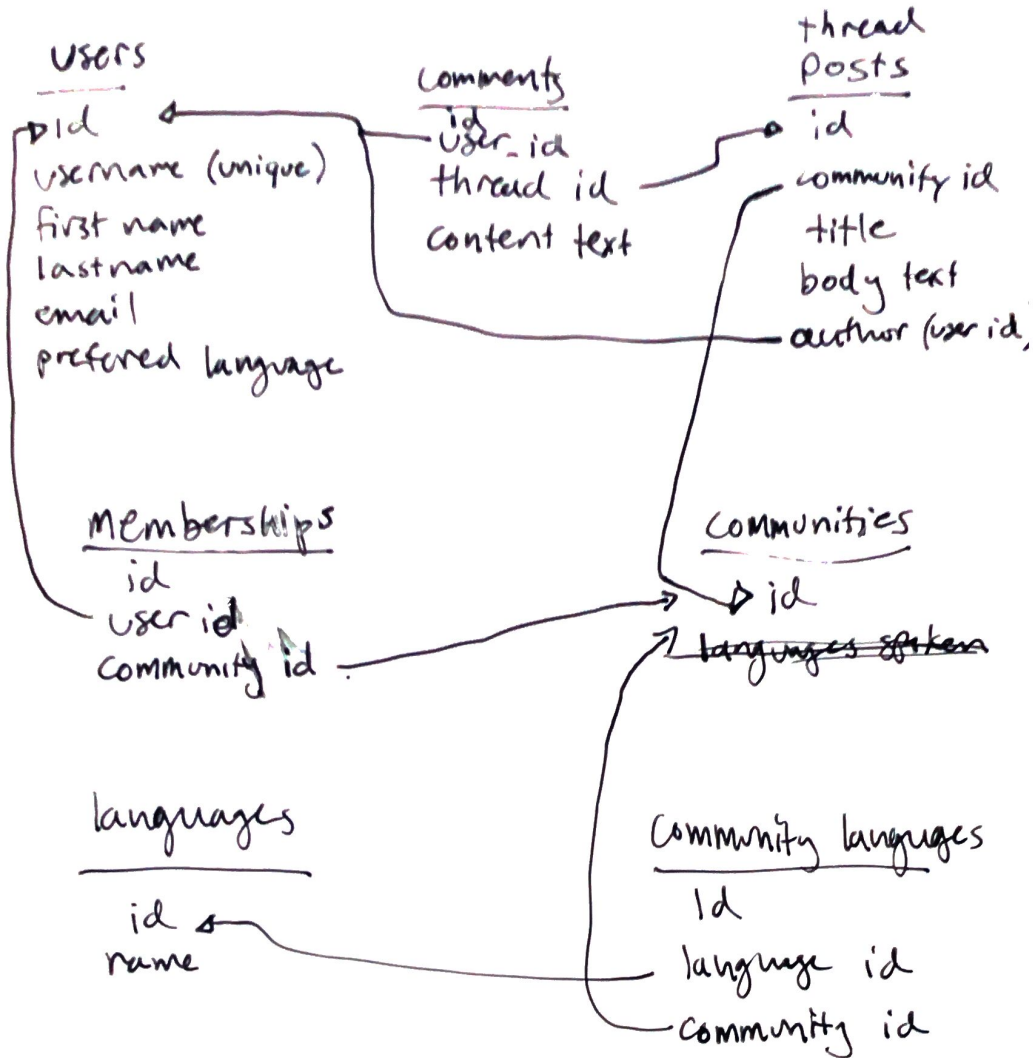 users
id
username (unique)
first name
lastname
email
prefered language
comments
id
user_id
thread id
content text
thread
posts
id
community id
title
body text
author (user id)
memberships
id
user id
community id
communities
id
languages spoken
languages
id
name
community languges
Id
language id
community id